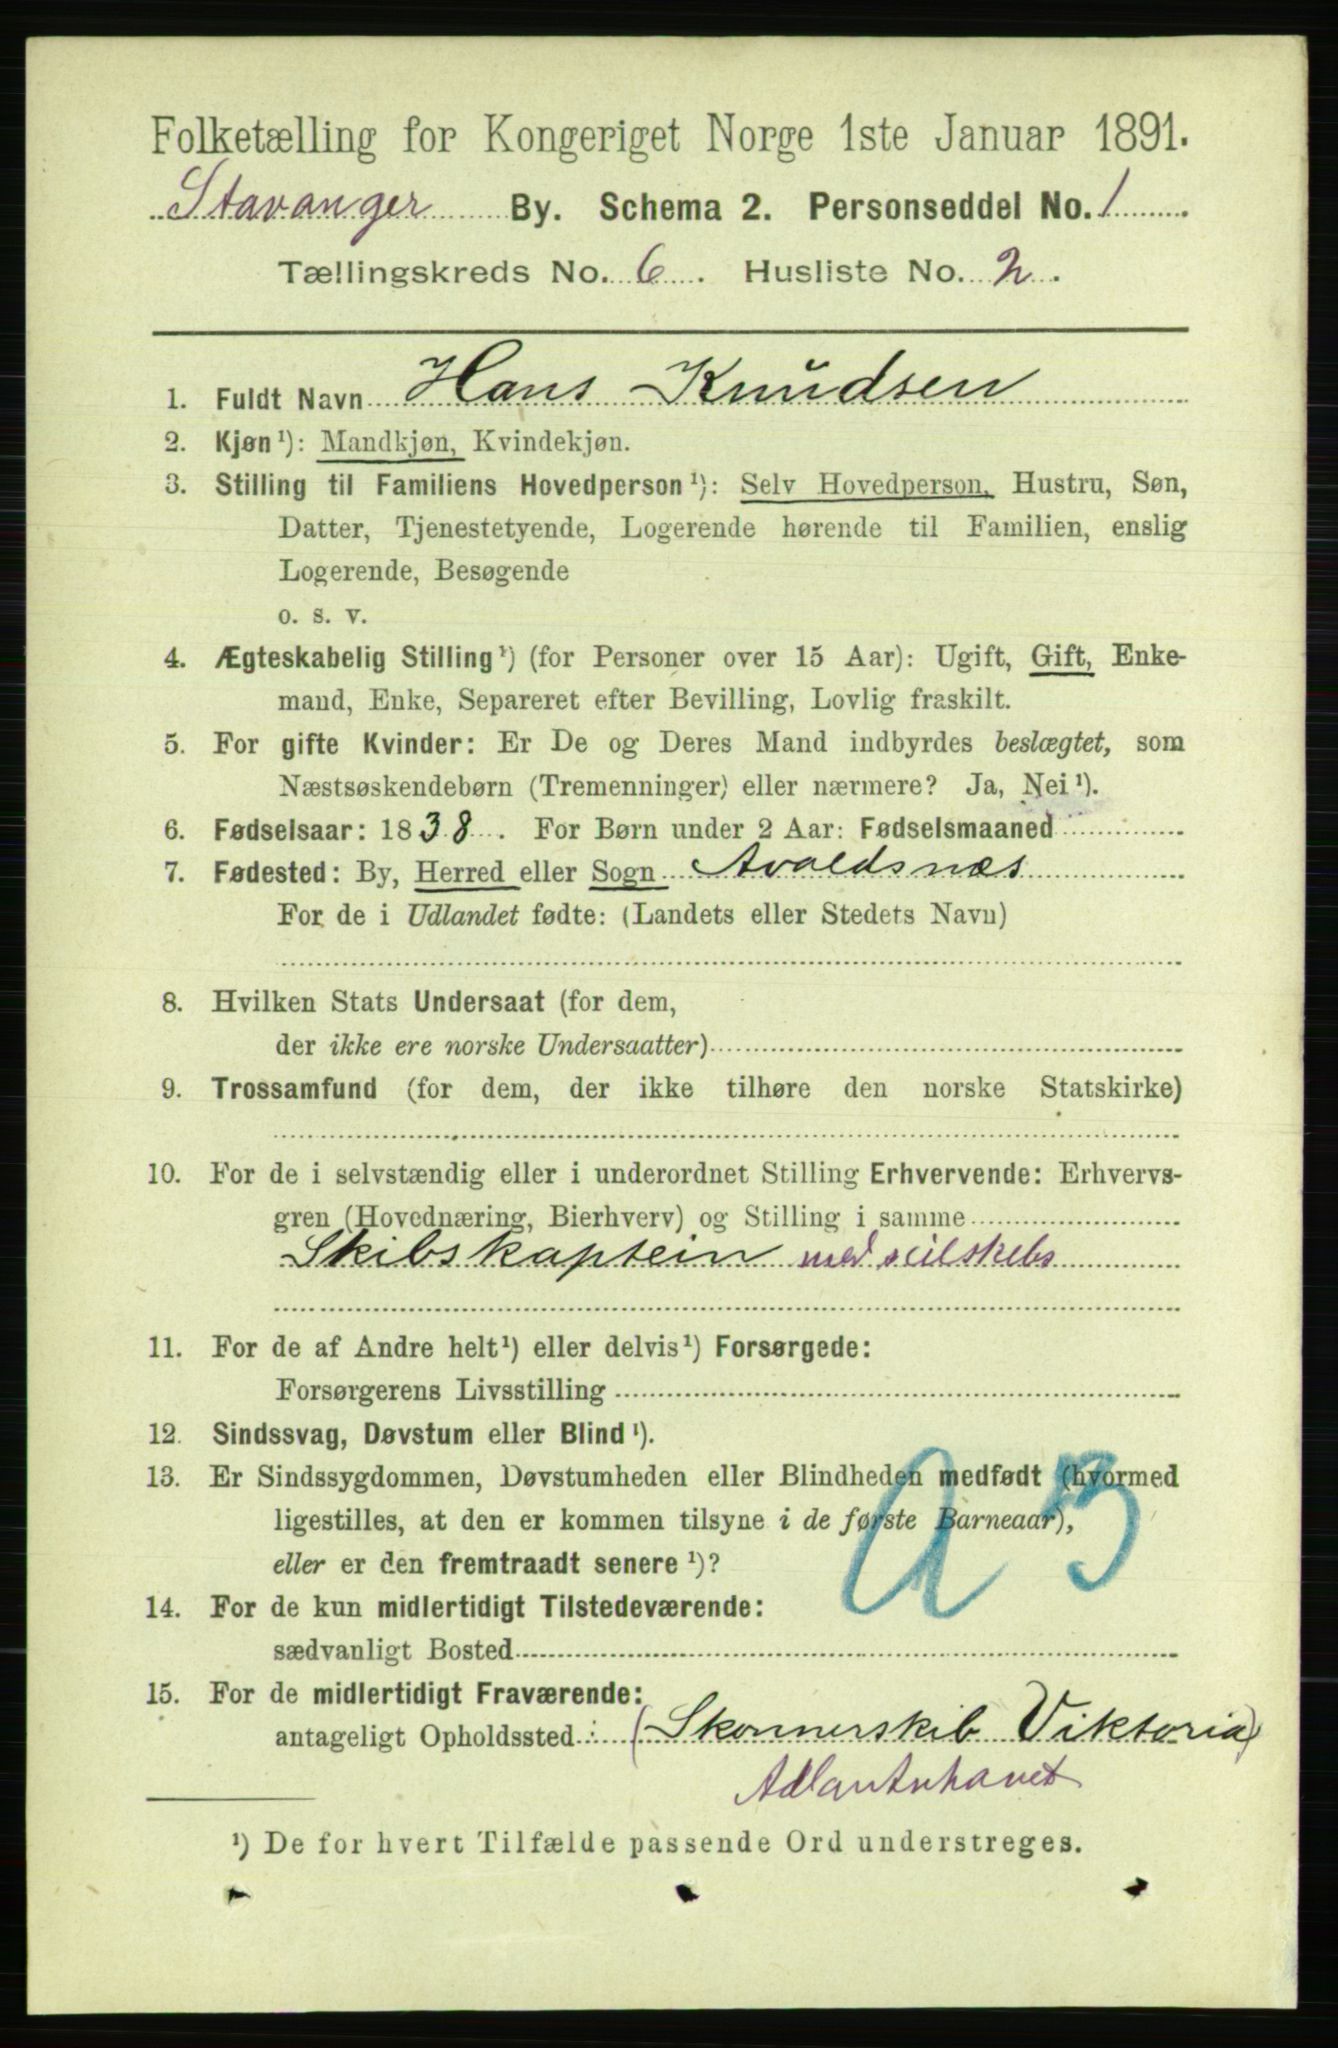 Folketælling for Kongeriget Norge 1ste Januar 1891.
Stavanger By. Schema 2. Personseddel No. 1
Tællingskreds No. 6. Husliste No. 2.
1. Fuldt Navn Hans Knudsen
2. Kjøn¹): Mandkjøn, Kvindekjøn.
3. Stilling til Familiens Hovedperson¹): Selv Hovedperson, Hustru, Søn,
Datter, Tjenestetyende, Logerende hørende til Familien, enslig
Logerende, Besøgende
o. s. v.
4. Ægteskabelig Stilling¹) (for Personer over 15 Aar): Ugift, Gift, Enke-
mand, Enke, Separeret efter Bevilling, Lovlig fraskilt.
5. For gifte Kvinder: Er De og Deres Mand indbyrdes beslægtet, som
Næstsøskendebørn (Tremenninger) eller nærmere? Ja, Nei¹).
6. Fødselsaar: 1838. For Børn under 2 Aar: Fødselsmaaned
7. Fødested: By, Herred eller Sogn Avaldsnæs
For de i Udlandet fødte: (Landets eller Stedets Navn)
8. Hvilken Stats Undersaat (for dem,
der ikke ere norske Undersaatter)
9. Trossamfund (for dem, der ikke tilhøre den norske Statskirke)
10. For de i selvstændig eller i underordnet Stilling Erhvervende: Erhvervs-
gren (Hovednæring, Bierhverv) og Stilling i samme
Skibskaptein med seilskibs
11. For de af Andre helt¹) eller delvis¹) Forsørgede:
Forsørgerens Livsstilling
12. Sindssvag, Døvstum eller Blind¹).
13. Er Sindssygdommen, Døvstumheden eller Blindheden medfødt (hvormed
ligestilles, at den er kommen tilsyne i de første Barneaar),
eller er den fremtraadt senere¹)?
14. For de kun midlertidigt Tilstedeværende:
sædvanligt Bosted
15. For de midlertidigt Fraværende:
antageligt Opholdssted: (Skonnerskib Viktoria)
Adlanterhavet
¹) De for hvert Tilfælde passende Ord understreges.